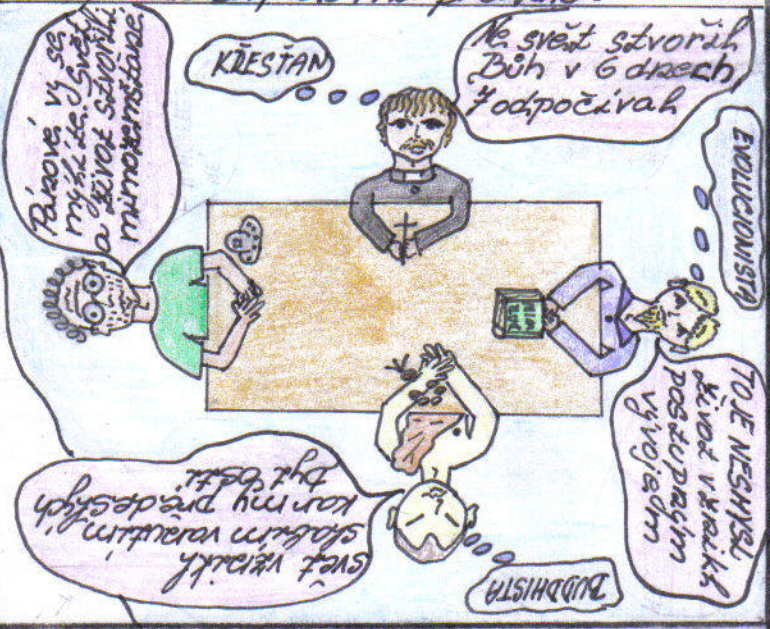 KŘESŤAN
Ne svět stvořil
Bůh v 6 dnech
7 odpočíval
EVOLUCIONISTA
TO JE NESMYSL
život vznikl
postupným
vývojem
BUDDHISTA
svět vznikl
vanutím
karmy předešlých
bytostí
Pánové vy se
mýlíte, svět
a život stvořili
mimozemšťané